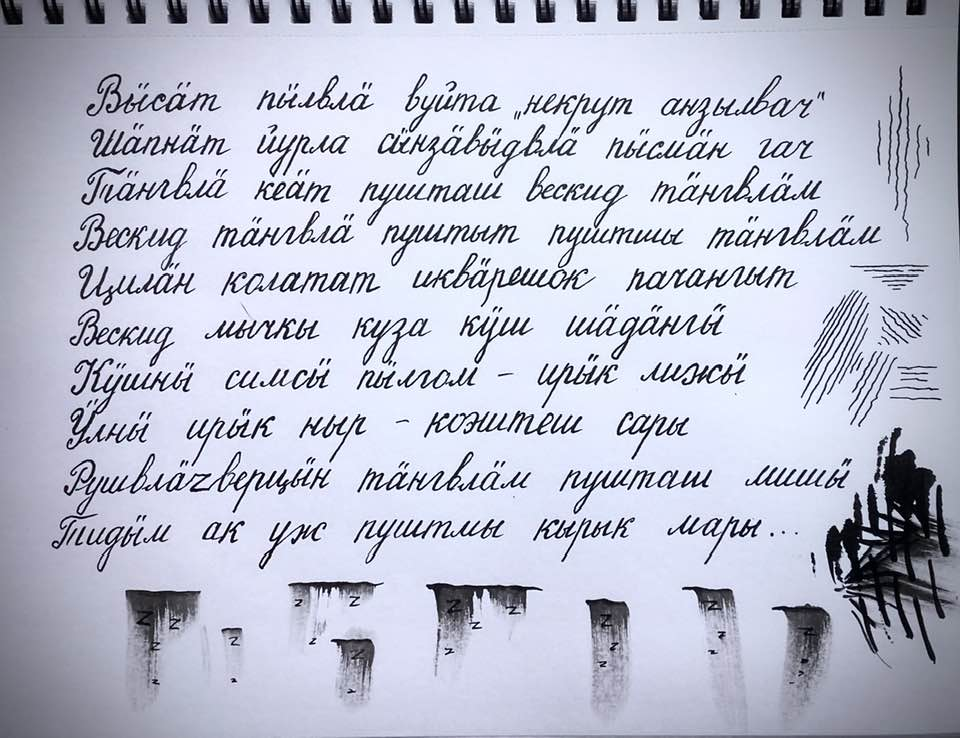 Вӹсӓт пӹлвлӓ вуйта „некрут анзылвач“
Шӓпнӓт йурла сӹнзӓвӹдвлӓ пӹсмӓн гач
Тӓнгвлӓ кеӓт пушташ вескид тӓнгвлӓм
Вескид тӓнгвлӓ пуштыт пуштшы тӓнгвлӓм
Цилӓн колатат иквӓрешок пачангыт
Вескид мычкы куза кӱш шӓдӓнгӹ
Кӱшнӹ симсӹ пӹлгом – ирӹк лижӹ
Ӱлнӹ ирӹк ныр – кожштеш сары
Рушвлӓzверцӹн тӓнгвлӓм пушташ мишӹ
Тидӹм ак уж пуштмы кырык мары...
z z z z
z z z z
z z z
z z z
z z z
z z z